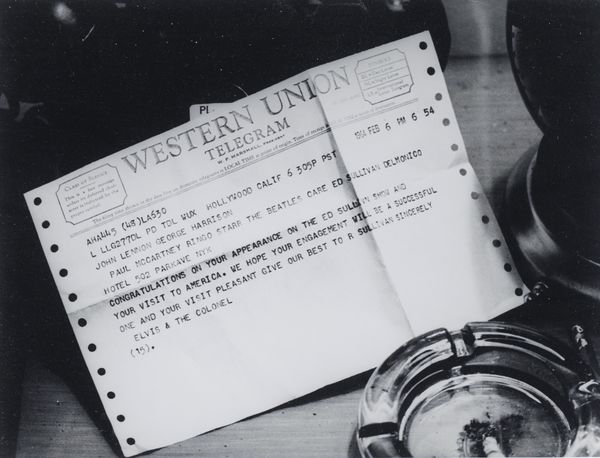 PI
WESTERN UNION
TELEGRAM
W. P. MARSHALL, PRESIDENT
CLASS OF SERVICE
This is a fast message
1964 FEB 6 PM 6 54
AHA445 (48)LA630
L LLG277DL PD TDL WUX HOLLYWOOD CALIF 6 305P PST
JOHN LENNON GEORGE HARRISON
PAUL MCCARTNEY RINGO STARR THE BEATLES CARE ED SULLIVAN DELMONICO
HOTEL 502 PARKAVE NYK
CONGRATULATIONS ON YOUR APPEARANCE ON THE ED SULLIVAN SHOW AND
YOUR VISIT TO AMERICA. WE HOPE YOUR ENGAGEMENT WILL BE A SUCCESSFUL
ONE AND YOUR VISIT PLEASANT GIVE OUR BEST TO R SULLIVAN SINCERELY
ELVIS & THE COLONEL
(15).